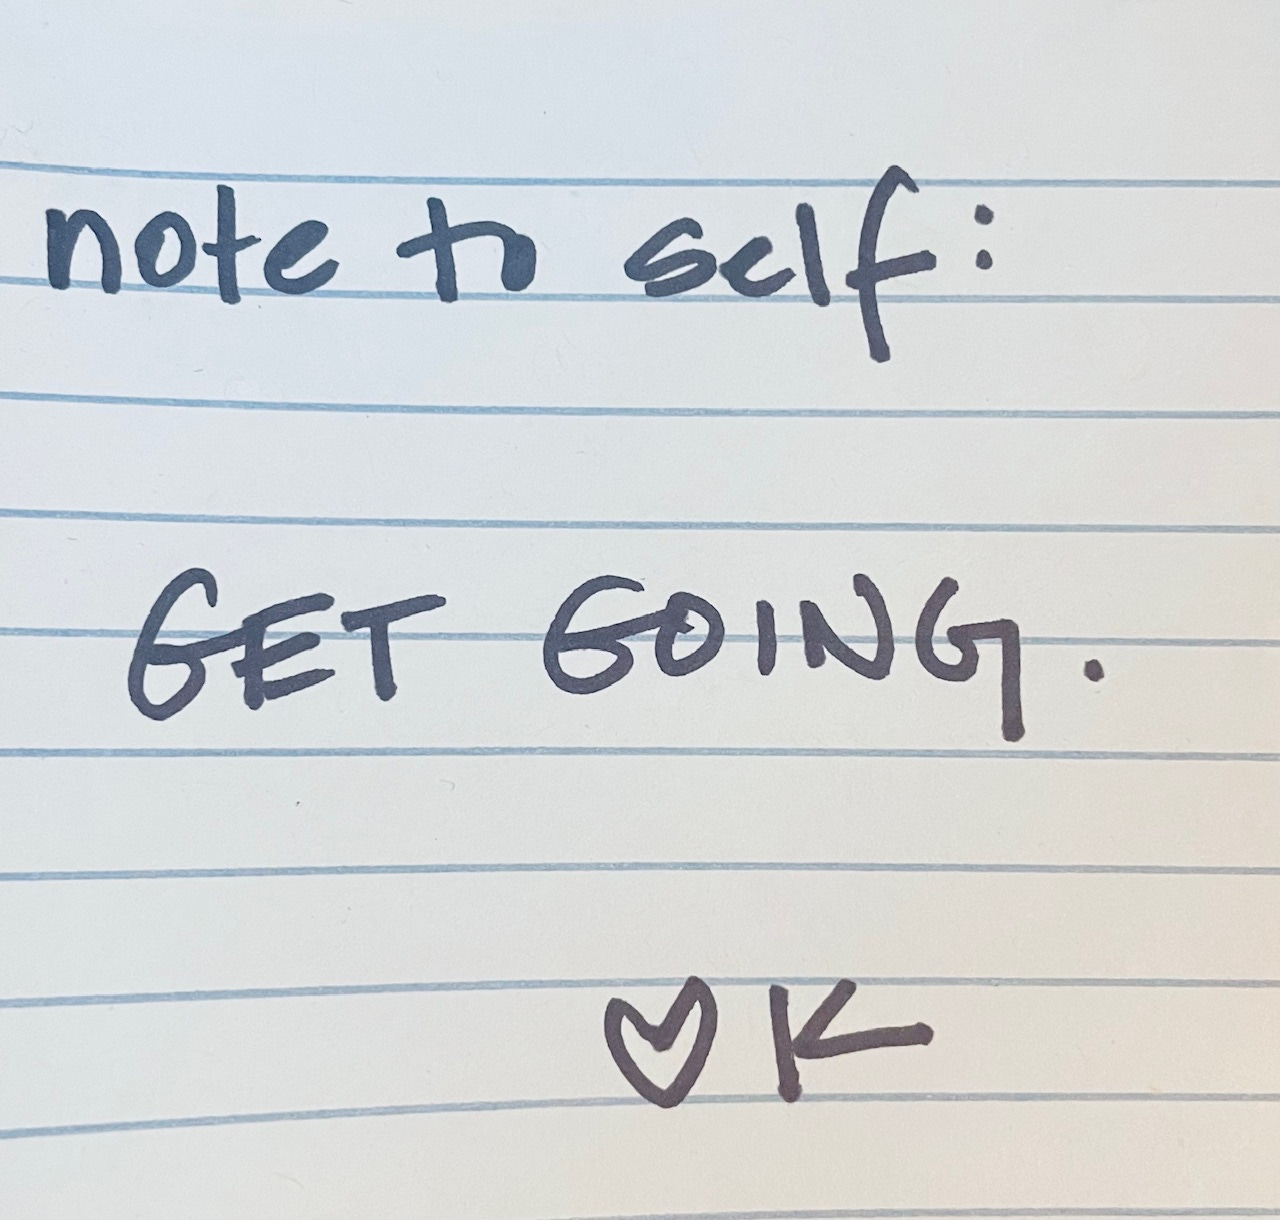 note to self:
GET GOING.
♡ K